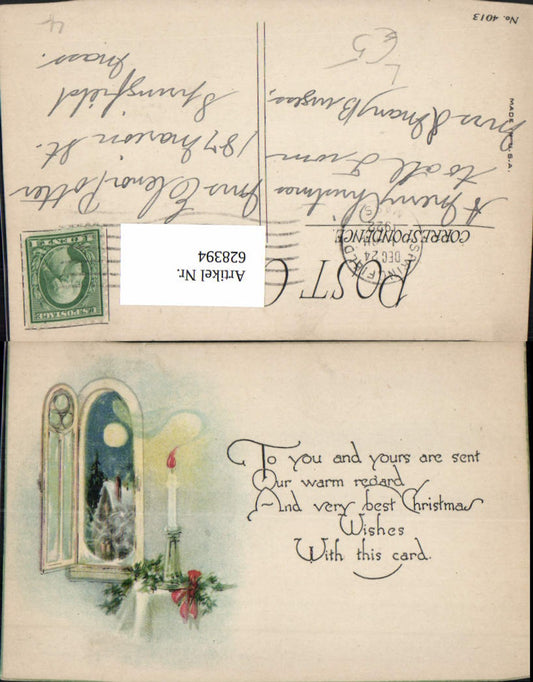 No. 4013
MADE IN U.S.A.
POST C
CORRESPONDENCE
SPRINGFIELD
DEC 24
MASS
U.S. POSTAGE
Artikel Nr.
628394
A Merry Christmas
to all From
Mrs Elenor Potter
187 Marion St.
Springfield
Mass.
To you and yours are sent
Our warm regard
And very best Christmas
Wishes
With this card.